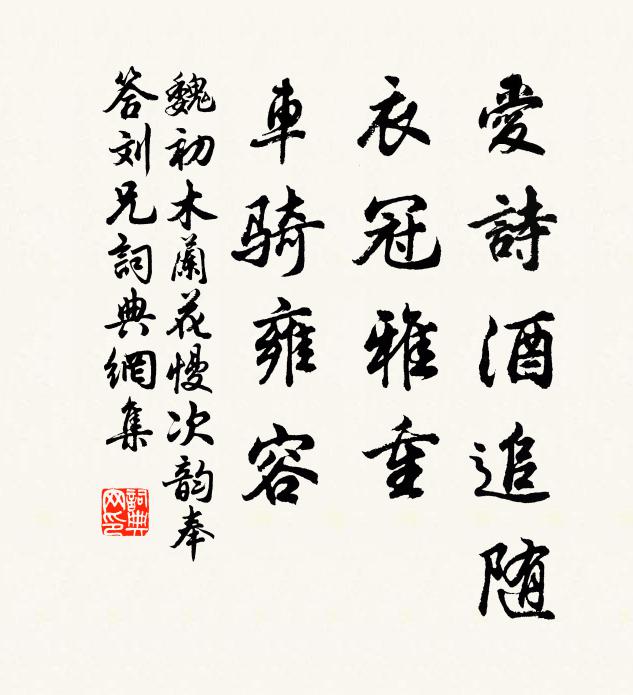 愛詩酒追随
衣冠雅重
車騎雍容
魏初木蘭花慢次韵奉
答刘兄詞典網集
詞典网印